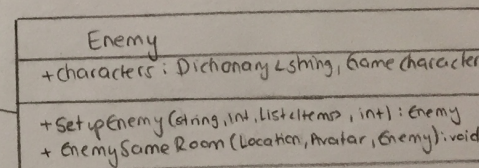 Enemy
+characters : Dichonary<string, Game character
+SetupEnemy (string, Int, List<Items>, int) : Enemy
+ EnemySameRoom (Location, Avatar, Enemy) : void